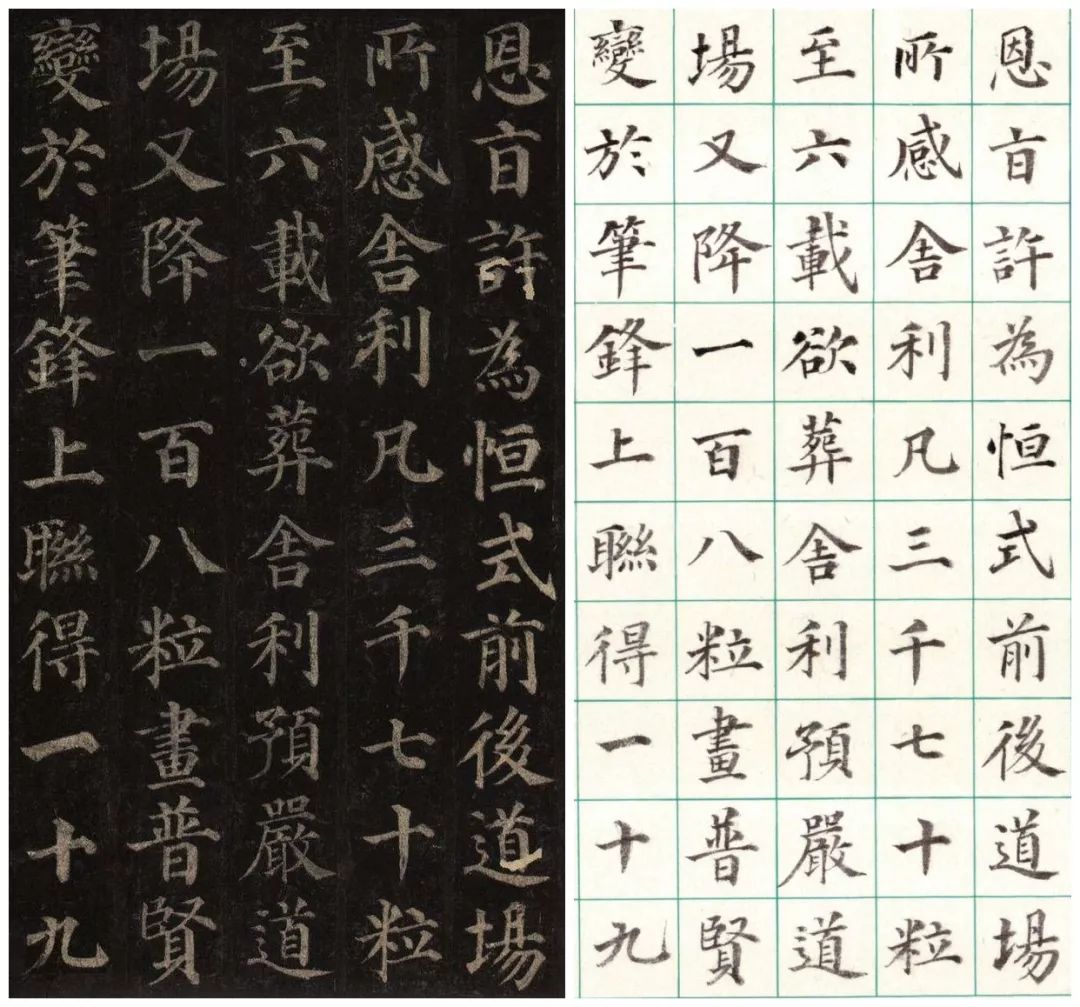 恩旨許為恒式前後道場
所感舍利凡三千七十粒
至六載欲葬舍利預嚴道
場又降一百八粒畫普賢
變於筆鋒上聯得一十九
恩旨許為恒式前後道場
所感舍利凡三千七十粒
至六載欲葬舍利預嚴道
場又降一百八粒畫普賢
變於筆鋒上聯得一十九